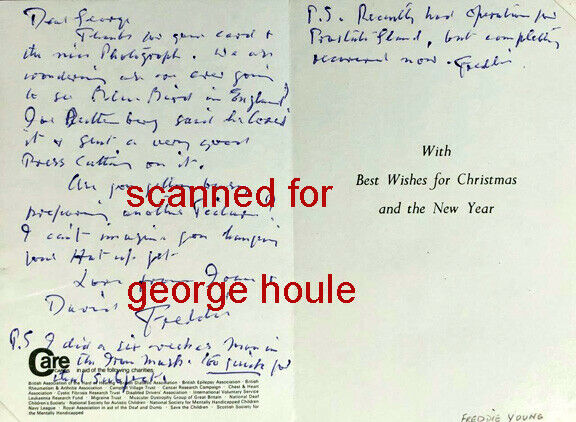 Dear George
Thanks for your card &
the nice Photograph. We are
wondering are we ever going
to see Blue Bird in England?
Joe said he loved
it & sent a very good
Press Cutting on it.
Are you
preparing another Feature?
I can't imagine you hanging
your Hat up yet
Love from Joan &
David Freddie
P.S. I did a six weeks Man in
the Iron Mask. too quick for
that subject.
scanned for
george houle
Care
in aid of the following charities
British Rheumatism & Arthritis Association · Campbell Village Trust · Cancer Research Campaign · Chest & Heart
Association · Cystic Fibrosis Research Trust · Disabled Drivers' Association · International Voluntary Service
Leukaemia Research Fund · Migraine Trust · Muscular Dystrophy Group of Great Britain · National Deaf
Children's Society · National Society for Autistic Children · National Society for Mentally Handicapped Children
Navy League · Royal Association in aid of the Deaf and Dumb · Save the Children · Scottish Society for
the Mentally Handicapped
P.S. Recently had operation for
Prostate Gland, but completely
recovered now. Freddie.
With
Best Wishes for Christmas
and the New Year
FREDDIE YOUNG